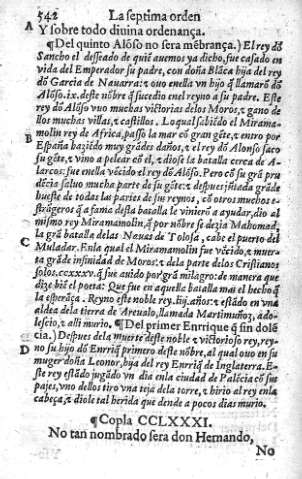 542 La septima orden
A Y sobre todo diuina ordenança.
¶Del quinto Alõso no sera mẽbrança.) El rey dõ
Sancho el desseado de quiẽ auemos ya dicho, fue casado en
vida del Emperador su padre, con doña Blãca hija del rey
dõ Garcia de Nauarra: ⁊ ouo enella vn hijo q̃ llamarõ dõ
Alõso.ix. deste nõbre q̃ sucedio enel reyno a su padre. Este
rey dõ Alõso vuo muchas victorias delos Moros, ⁊ gano de
llos muchas villas, ⁊ castillos. Lo qual sabiẽdo el Mirama-
molin rey de Africa, passo la mar cõ gran gẽte, ⁊ entro por
B España haziẽdo muy grãdes daños, ⁊ el rey dõ Alonso saco
su gẽte, ⁊ vino a pelear cõ el, ⁊ diose la batalla cerca de A-
larcos: fue enella vẽcido el rey dõ Alõso. Pero cõ su grã pru
dẽcia saluo mucha parte de su gẽte: ⁊ despues jũtada grãde
hueste de todas las partes de sus reynos, cõ otros muchos e-
strãgeros q̃ a fama desta batalla le vinierõ a ayudar, dio al
mismo rey Miramamolin, q̃ por nõbre se dezia Mahomad,
la grã batalla delas Nauas de Tolosa, cabe el puerto del
C Muladar. Enla qual el Miramamolin fue vẽcido, ⁊ muer-
ta grãde infinidad de Moros: ⁊ dela parte delos Cristianos
solos.ccxxxv. q̃ fue auido por grã milagro: de manera que
dize biẽ el poeta: Que fue en aquella batalla mas el hecho q̃
la esperãça. Reyno este noble rey.liij. años: ⁊ estãdo en vna
aldea dela tierra de Areualo, llamada Martimuñoz, ado-
lescio, ⁊ alli murio. ¶Del primer Enrrique q̃ sin dolẽ
D cia.) Despues dela muerte deste noble ⁊ victorioso rey, rey-
no su hijo dõ Enrriq̃ primero deste nõbre, al qual ouo en su
muger doña Leonor, hija del rey Enrriq̃ de Inglaterra. E-
ste rey estãdo jugãdo vn dia enla ciudad de Palẽcia cõ sus
pajes, vno dellos tiro vna teja dela torre, ⁊ hirio al rey enla
cabeça, ⁊ diole tal herida que dende a pocos dias murio.
¶Copla CCLXXXI.
No tan nombrado sera don Hernando,
No